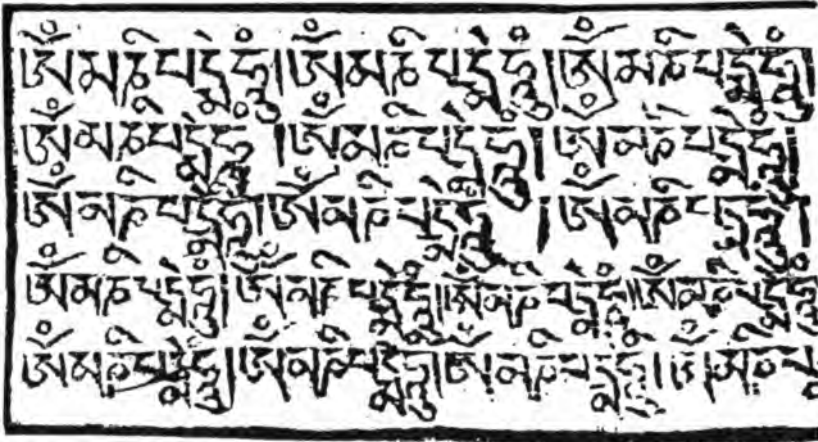 ཨོཾ་མ་ཎི་པདྨེ་ཧཱུྃ།ཨོཾ་མ་ཎི་པདྨེ་ཧཱུྃ།ཨོཾ་མ་ཎི་པདྨེ་ཧཱུྃ།
ཨོཾ་མ་ཎི་པདྨེ་ཧཱུྃ །ཨོཾ་མ་ཎི་པདྨེ་ཧཱུྃ།ཨོཾ་མ་ཎི་པདྨེ་ཧཱུྃ།
ཨོཾ་མ་ཎི་པདྨེ་ཧཱུྃ།ཨོཾ་མ་ཎི་པདྨེ་ཧཱུྃ །ཨོཾ་མ་ཎི་པདྨེ་ཧཱུྃ།
ཨོཾ་མ་ཎི་པདྨེ་ཧཱུྃ།ཨོཾ་མ་ཎི་པདྨེ་ཧཱུྃ།ཨོཾ་མ་ཎི་པདྨེ་ཧཱུྃ།།ཨོཾ་མ་ཎི་པདྨེ་ཧཱུྃ
ཨོཾ་མ་ཎི་པདྨེ་ཧཱུྃ།ཨོཾ་མ་ཎི་པདྨེ་ཧཱུྃ།ཨོཾ་མ་ཎི་པདྨེ་ཧཱུྃ།ཨོཾ་མ་ཎི་པ